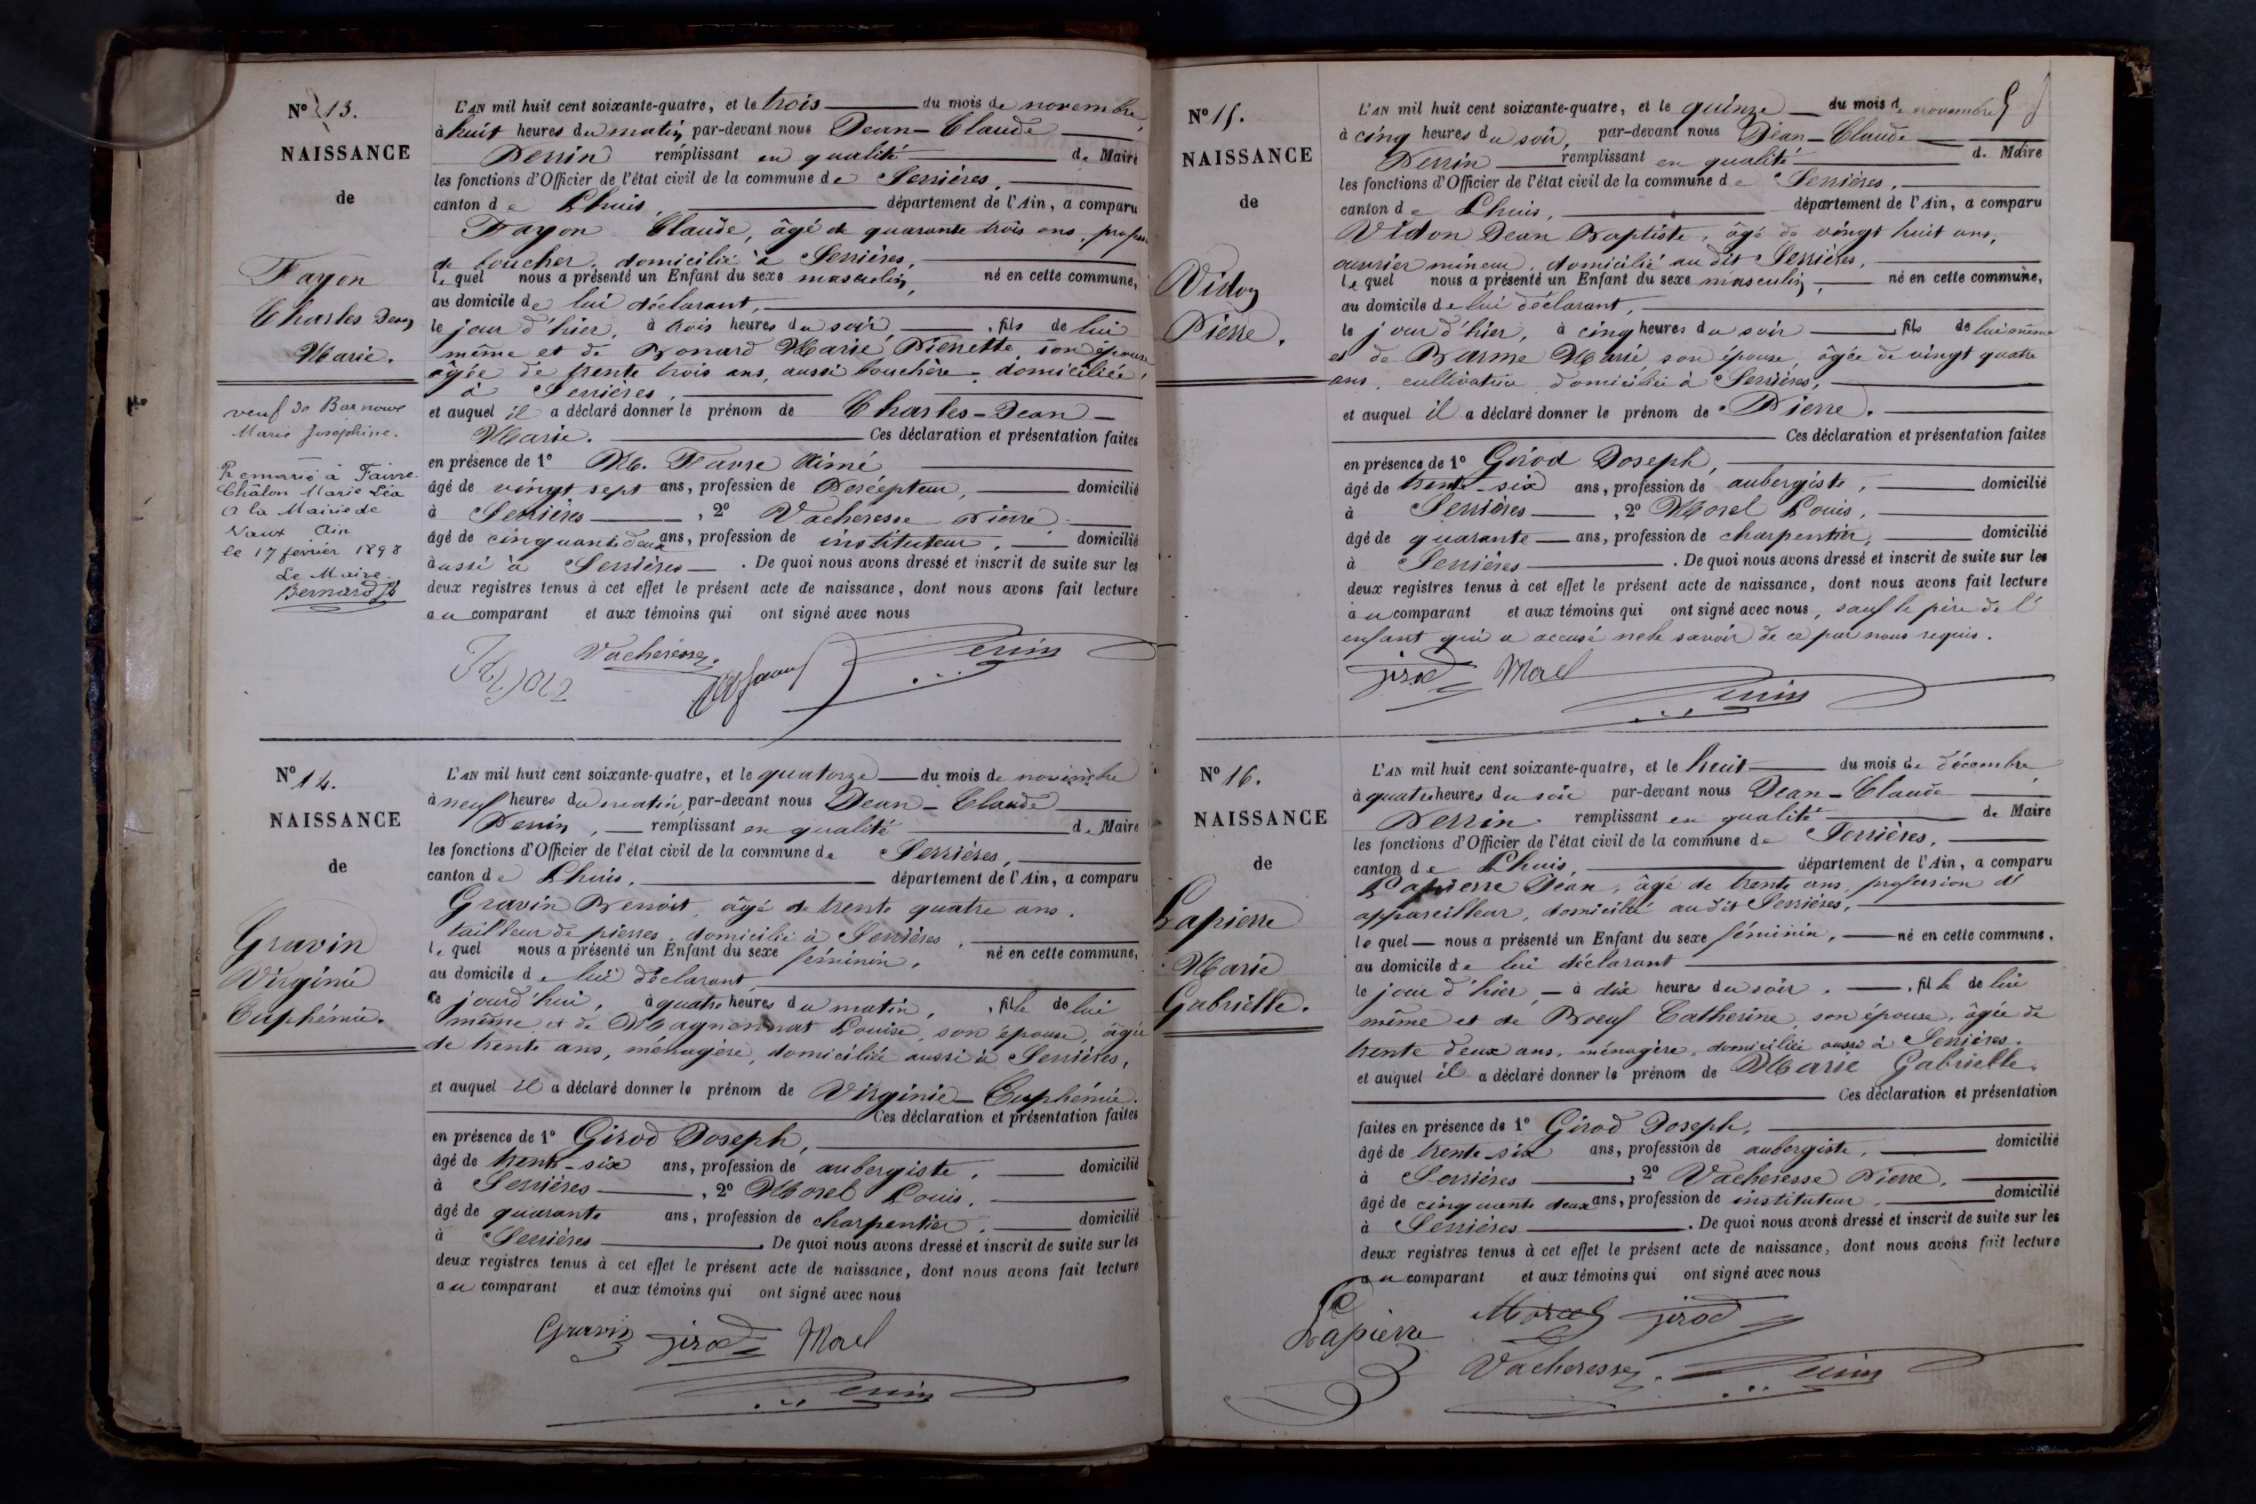 N° 13.
NAISSANCE
de
Fayon
Charles Jean
Marie.
veuf de Barnoux
Marie Josephine.
Remarié à Faivre
Châlon Marie Léa
à la Mairie de
Vaux Ain
le 17 février 1898
Le Maire
Bernard
L'AN mil huit cent soixante-quatre, et le trois du mois de novembre,
à huit heures du matin par-devant nous Jean-Claude
Perrin remplissant en qualité de Maire
les fonctions d'Officier de l'état civil de la commune de Serrières,
canton de Lhuis, département de l'Ain, a comparu
Fayon Claude, âgé de quarante trois ans, profess
de boucher, domicilié à Serrières,
le quel nous a présenté un Enfant du sexe masculin, né en cette commune,
au domicile de lui déclarant,
le jour d'hier, à trois heures du soir, fils de lui
même et de Bonard Marie Pierrette, son épouse
âgée de trente trois ans, aussi bouchère, domiciliée
à Serrières,
et auquel il a déclaré donner le prénom de Charles-Jean-
Marie. Ces déclaration et présentation faites
en présence de 1° M. Favre Aimé
âgé de vingt sept ans, profession de Percepteur, domicilié
à Serrières, 2° Vacheresse Pierre,
âgé de cinquante deux ans, profession de instituteur, domicilié
à aussi à Serrières. De quoi nous avons dressé et inscrit de suite sur les
deux registres tenus à cet effet le présent acte de naissance, dont nous avons fait lecture
au comparant et aux témoins qui ont signé avec nous
Vacheresse
Perrin
N° 14.
NAISSANCE
de
Gravin
Virginie
Euphémie.
L'AN mil huit cent soixante-quatre, et le quatorze du mois de novembre
à neuf heures du matin, par-devant nous Jean-Claude
Perrin, remplissant en qualité de Maire
les fonctions d'Officier de l'état civil de la commune de Serrières,
canton de Lhuis, département de l'Ain, a comparu
Gravin Benoit, âgé de trente quatre ans.
tailleur de pierres, domicilié à Serrières,
le quel nous a présenté un Enfant du sexe féminin, né en cette commune,
au domicile de lui déclarant,
ce jourd'hui, à quatre heures du matin, fille de lui
même et de Magnonnat Louise, son épouse, âgée
de trente ans, ménagère, domiciliée aussi à Serrières,
et auquel il a déclaré donner le prénom de Virginie-Euphémie.
Ces déclaration et présentation faites
en présence de 1° Girod Joseph,
âgé de trente-six ans, profession de aubergiste, domicilié
à Serrières, 2° Morel Louis,
âgé de quarante ans, profession de charpentier, domicilié
à Serrières. De quoi nous avons dressé et inscrit de suite sur les
deux registres tenus à cet effet le présent acte de naissance, dont nous avons fait lecture
au comparant et aux témoins qui ont signé avec nous
Gravin girod Morel
Perrin
N° 15.
NAISSANCE
de
Vidon
Pierre.
L'AN mil huit cent soixante-quatre, et le quinze du mois de novembre
à cinq heures du soir, par-devant nous Jean-Claude
Perrin remplissant en qualité de Maire
les fonctions d'Officier de l'état civil de la commune de Serrières,
canton de Lhuis, département de l'Ain, a comparu
Vidon Jean Baptiste, âgé de vingt huit ans,
ouvrier mineur, domicilié au dit Serrières,
le quel nous a présenté un Enfant du sexe masculin, né en cette commune,
au domicile de lui déclarant,
le jour d'hier, à cinq heures du soir, fils de lui même
et de Barme Marie son épouse, âgée de vingt quatre
ans, cultivatrice domiciliée à Serrières,
et auquel il a déclaré donner le prénom de Pierre.
Ces déclaration et présentation faites
en présence de 1° Girod Joseph,
âgé de trente-six ans, profession de aubergiste, domicilié
à Serrières, 2° Morel Louis,
âgé de quarante ans, profession de charpentier, domicilié
à Serrières. De quoi nous avons dressé et inscrit de suite sur les
deux registres tenus à cet effet le présent acte de naissance, dont nous avons fait lecture
au comparant et aux témoins qui ont signé avec nous, sauf le père de l'
enfant qui a accusé ne le savoir de ce par nous requis.
girod Morel
Perrin
N° 16.
NAISSANCE
de
Lapierre
Marie
Gabrielle.
L'AN mil huit cent soixante-quatre, et le huit du mois de décembre
à quatre heures du soir par-devant nous Jean-Claude
Perrin remplissant en qualité de Maire
les fonctions d'Officier de l'état civil de la commune de Serrières,
canton de Lhuis, département de l'Ain, a comparu
Lapierre Jean, âgé de trente ans, profession d'
appareilleur, domicilié au dit Serrières,
le quel nous a présenté un Enfant du sexe féminin, né en cette commune,
au domicile de lui déclarant
le jour d'hier, à dix heures du soir, fille de lui
même et de Boeuf Catherine, son épouse, âgée de
trente deux ans, ménagère, domiciliée aussi à Serrières.
et auquel il a déclaré donner le prénom de Marie Gabrielle.
Ces déclaration et présentation
faites en présence de 1° Girod Joseph,
âgé de trente-six ans, profession de aubergiste, domicilié
à Serrières, 2° Vacheresse Pierre,
âgé de cinquante deux ans, profession de instituteur, domicilié
à Serrières. De quoi nous avons dressé et inscrit de suite sur les
deux registres tenus à cet effet le présent acte de naissance, dont nous avons fait lecture
au comparant et aux témoins qui ont signé avec nous
Lapierre girod
Vacheresse Perrin